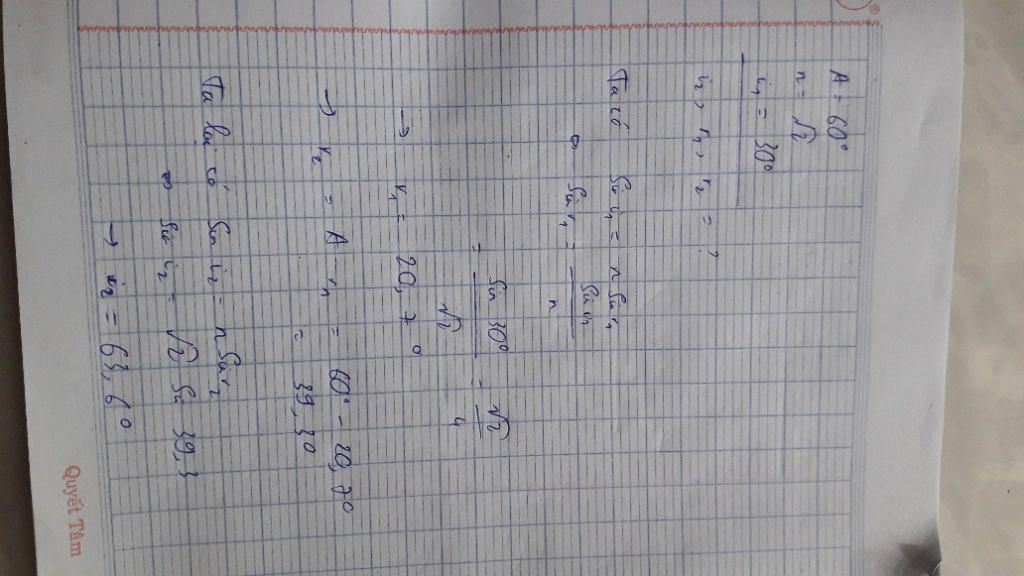 A = 60°
n = √2
i₁ = 30°
i₂, r₁, r₂ = ?
Ta có sin i₁ = n sin r₁
⇔ sin r₁ = sin i₁ / n
= sin 30° / √2 = √2 / 4
→ r₁ = 20,7°
→ r₂ = A - r₁ = 60° - 20,7°
= 39,3°
Ta lại có sin i₂ = n sin r₂
⇔ sin i₂ = √2 sin 39,3
→ i₂ = 63,6°
Quyết Tâm
®